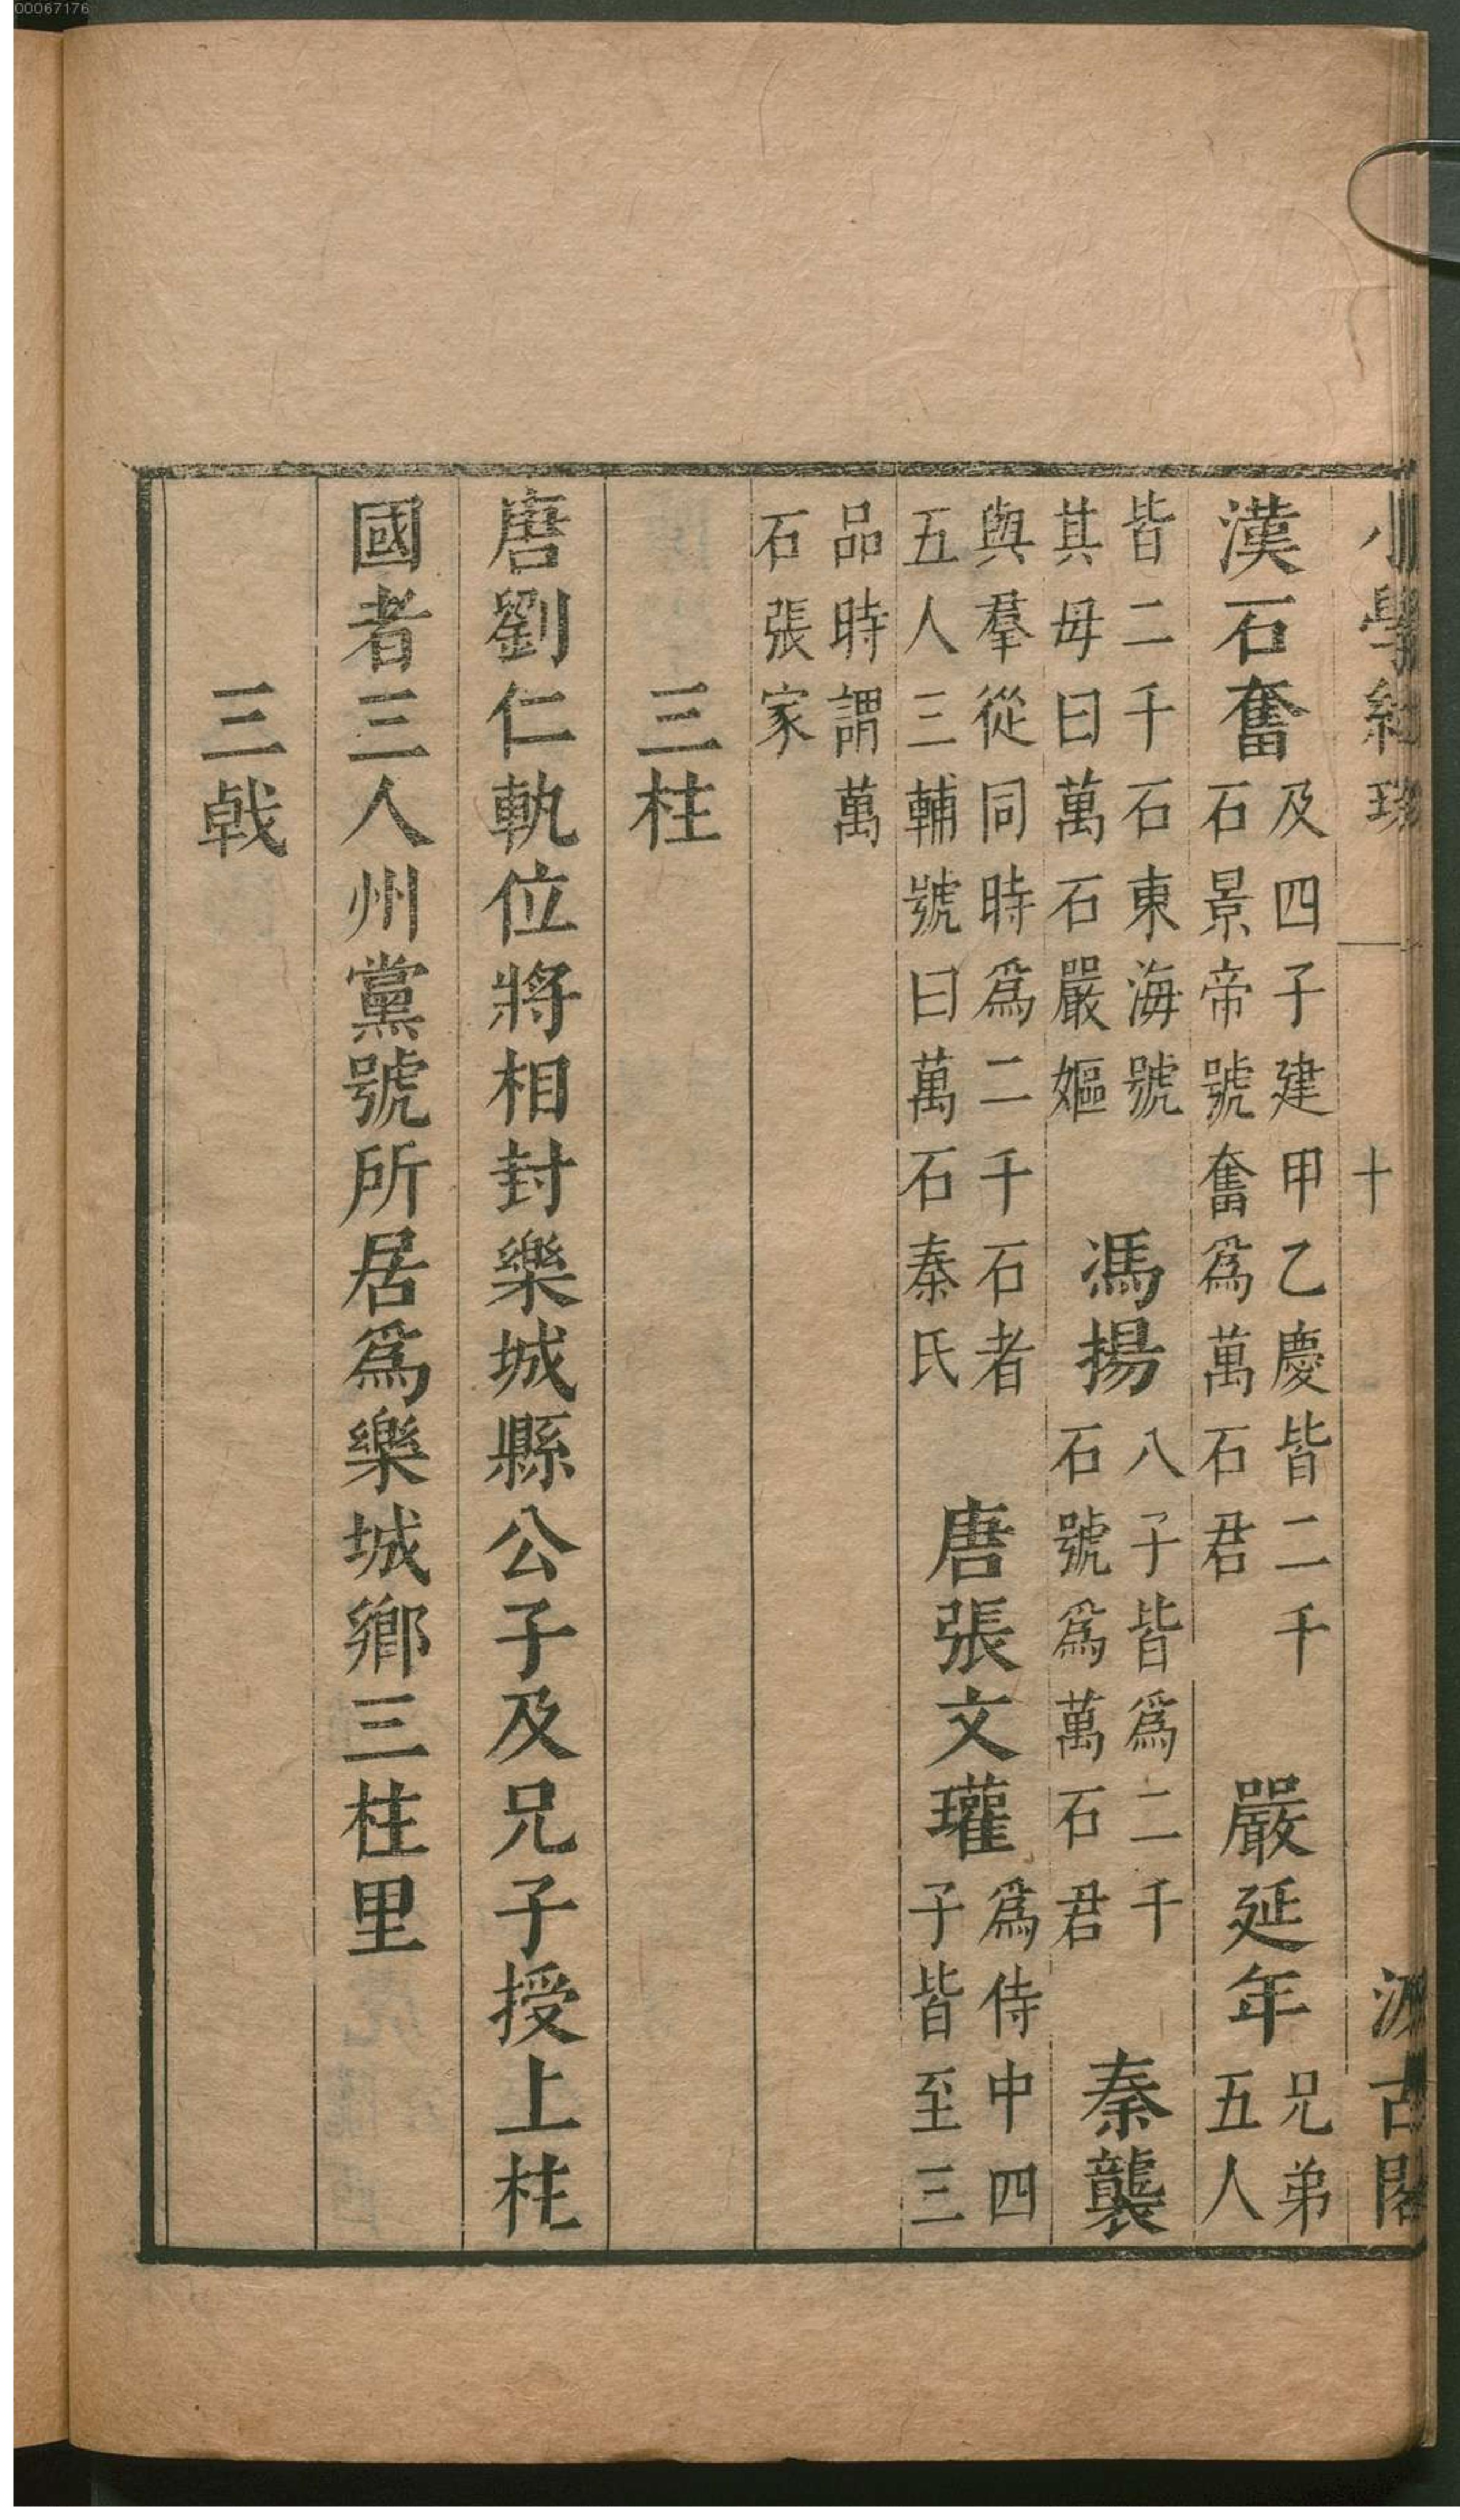 00067176
小學紺珠 十 汲古閣
漢石奮及四子建甲乙慶皆二千石景帝號奮爲萬石君 嚴延年兄弟五人
皆二千石東海號其母曰萬石嚴嫗 馮揚八子皆爲二千石號爲萬石君 秦襲
與羣從同時爲二千石者五人三輔號曰萬石秦氏 唐張文瓘爲侍中四子皆至三
品時謂萬石張家
三柱
唐劉仁軌位將相封樂城縣公子及兄子授上柱
國者三人州黨號所居爲樂城鄉三柱里
三戟